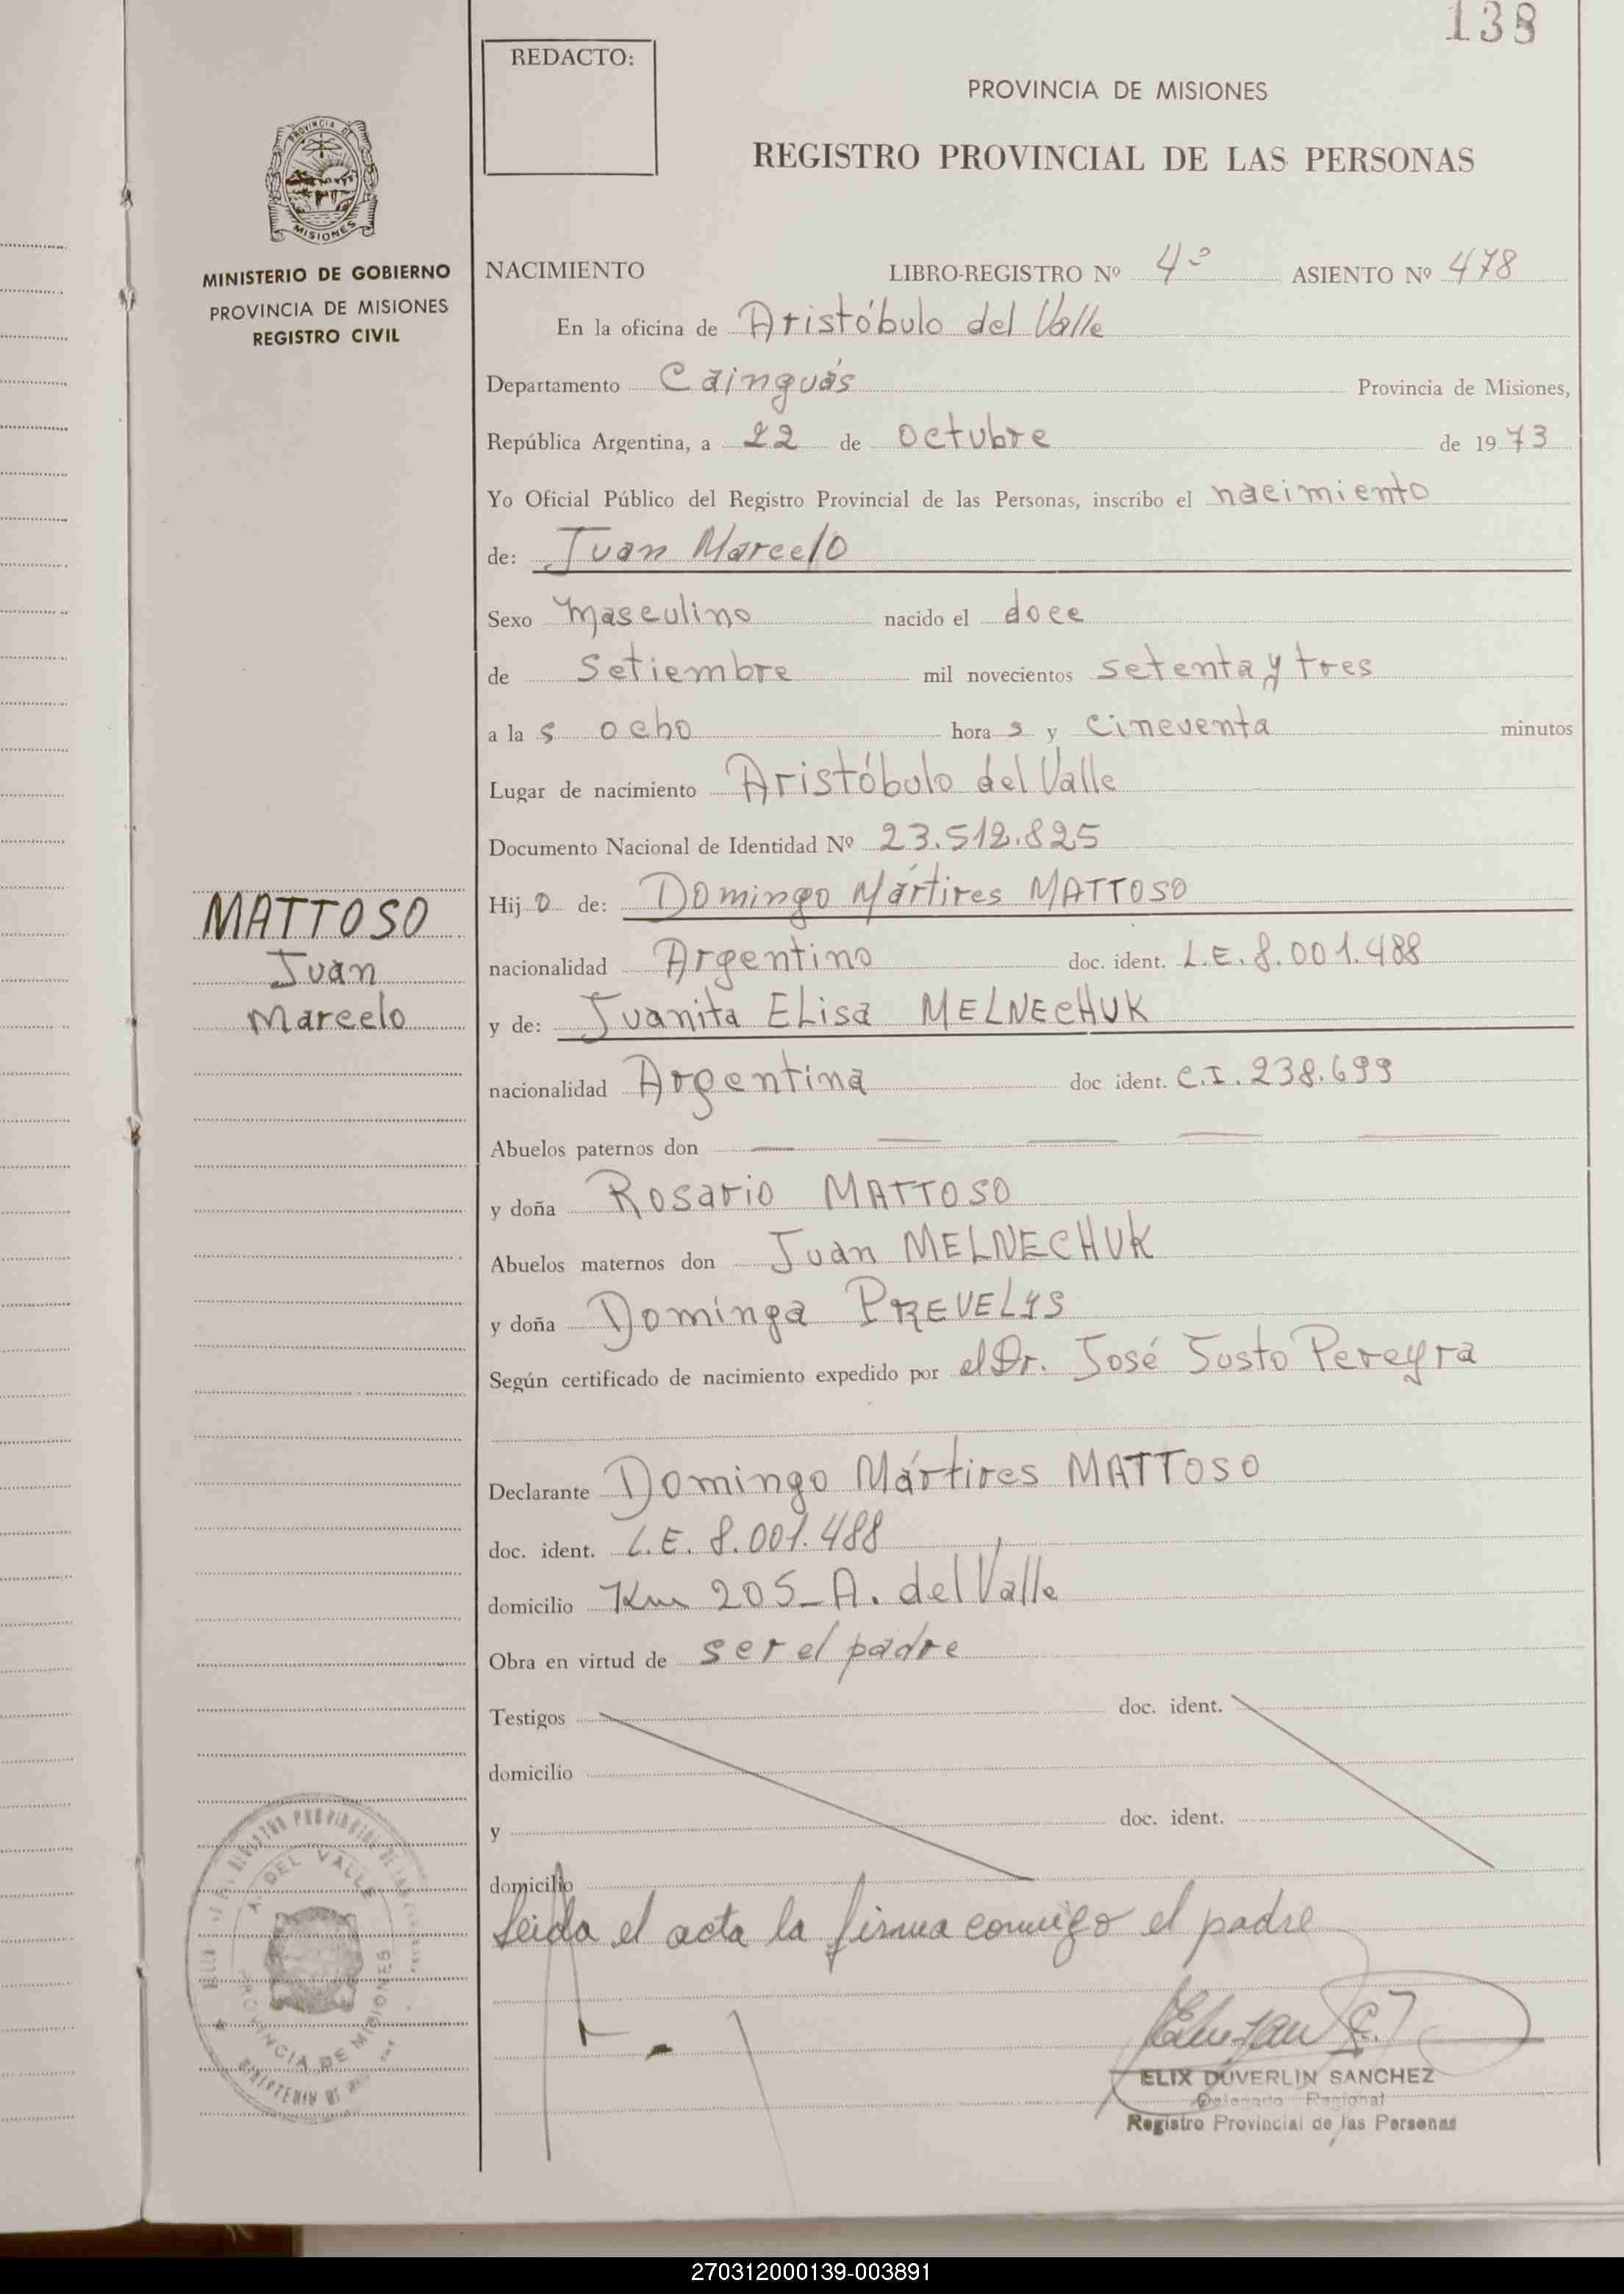 138
REDACTO:
PROVINCIA DE MISIONES
REGISTRO PROVINCIAL DE LAS PERSONAS
PROVINCIA DE
MISIONES
MINISTERIO DE GOBIERNO
PROVINCIA DE MISIONES
REGISTRO CIVIL
NACIMIENTO LIBRO-REGISTRO Nº 4º ASIENTO Nº 478
En la oficina de Aristóbulo del Valle
Departamento Cainguás Provincia de Misiones,
República Argentina, a 22 de octubre de 1973
Yo Oficial Público del Registro Provincial de las Personas, inscribo el nacimiento
de: Juan Marcelo
Sexo Masculino nacido el doce
de Setiembre mil novecientos setenta y tres
a las ocho horas y cincuenta minutos
Lugar de nacimiento Aristóbulo del Valle
Documento Nacional de Identidad Nº 23.512.825
MATTOSO
Juan
Marcelo
Hijo de: Domingo Mártires MATTOSO
nacionalidad Argentino doc. ident. L.E. 8.001.488
y de: Juanita Elisa MELNECHUK
nacionalidad Argentina doc ident. C.I. 238.699
Abuelos paternos don — — — — —
y doña Rosario MATTOSO
Abuelos maternos don Juan MELNECHUK
y doña Dominga PREVELYS
Según certificado de nacimiento expedido por el Dr. José Justo Pereyra
Declarante Domingo Mártires MATTOSO
doc. ident. L.E. 8.001.488
domicilio Km 205_A. del Valle
Obra en virtud de ser el padre
Testigos doc. ident.
domicilio
y doc. ident.
domicilio
Leida el acta la firma conmigo el padre
A. DEL VALLE
PROVINCIA DE MISIONES
ELIX DUVERLIN SANCHEZ
Delegado Regional
Registro Provincial de las Personas
270312000139-003891